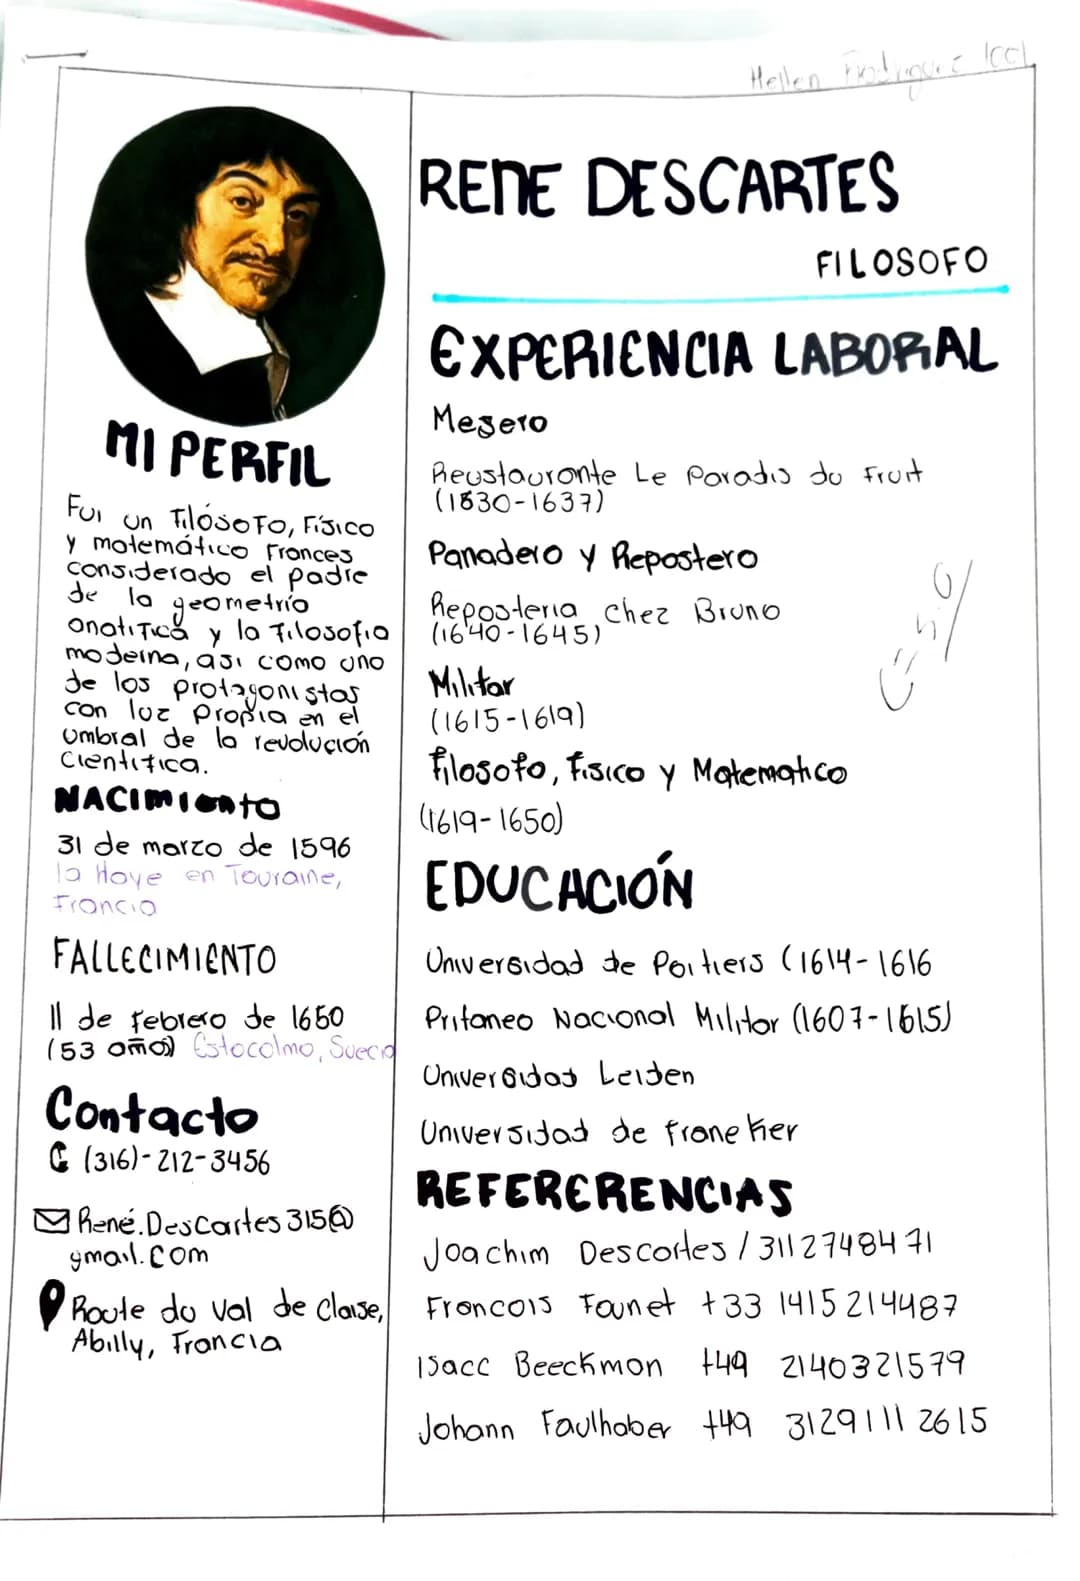 Hellen Rodriguez 1001
MI PERFIL
Fui un Filósofo, Físico
y matemático Frances
considerado el padre
de la geometría
analítica y la Filosofía
moderna, así como uno
de los protagonistas
con luz propia en el
umbral de la revolución
Científica.
NACIMIENTO
31 de marzo de 1596
la Haye en Touraine,
Francia
FALLECIMIENTO
11 de febrero de 1650
(53 años) Estocolmo, Suecia
Contacto
(316)-212-3456
René.Descartes315@
gmail.com
Route du val de Claise,
Abilly, Francia
RENE DESCARTES
FILOSOFO
EXPERIENCIA LABORAL
Mesero
Reustaurante Le Paradis du Fruit
(1630-1637)
Panadero y Repostero
Reposteria Chez Bruno
(1640-1645)
Militar
(1615-1619)
Filosofo, Fisico y Matematico
(1619-1650)
EDUCACIÓN
Universidad de Poitiers (1614-1616
Pritaneo Nacional Militar (1607-1615)
Universidad Leiden
Universidad de Franeker
REFERERENCIAS
Joachim Descartes / 3112748471
Francois Founet +33 1415214487
Isacc Beeckman +49 2140321579
Johann Faulhaber +49 31291112615